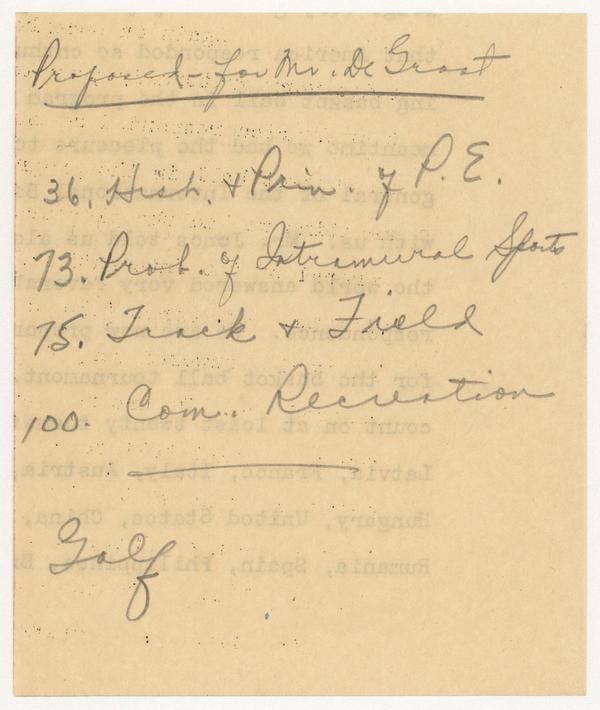 Proposed - for Mr. De Groot
36. Hist. + Prin of P. E.
73. Prob. of Intramural Sports
75. Track + Field
100. Com. Recreation
Golf